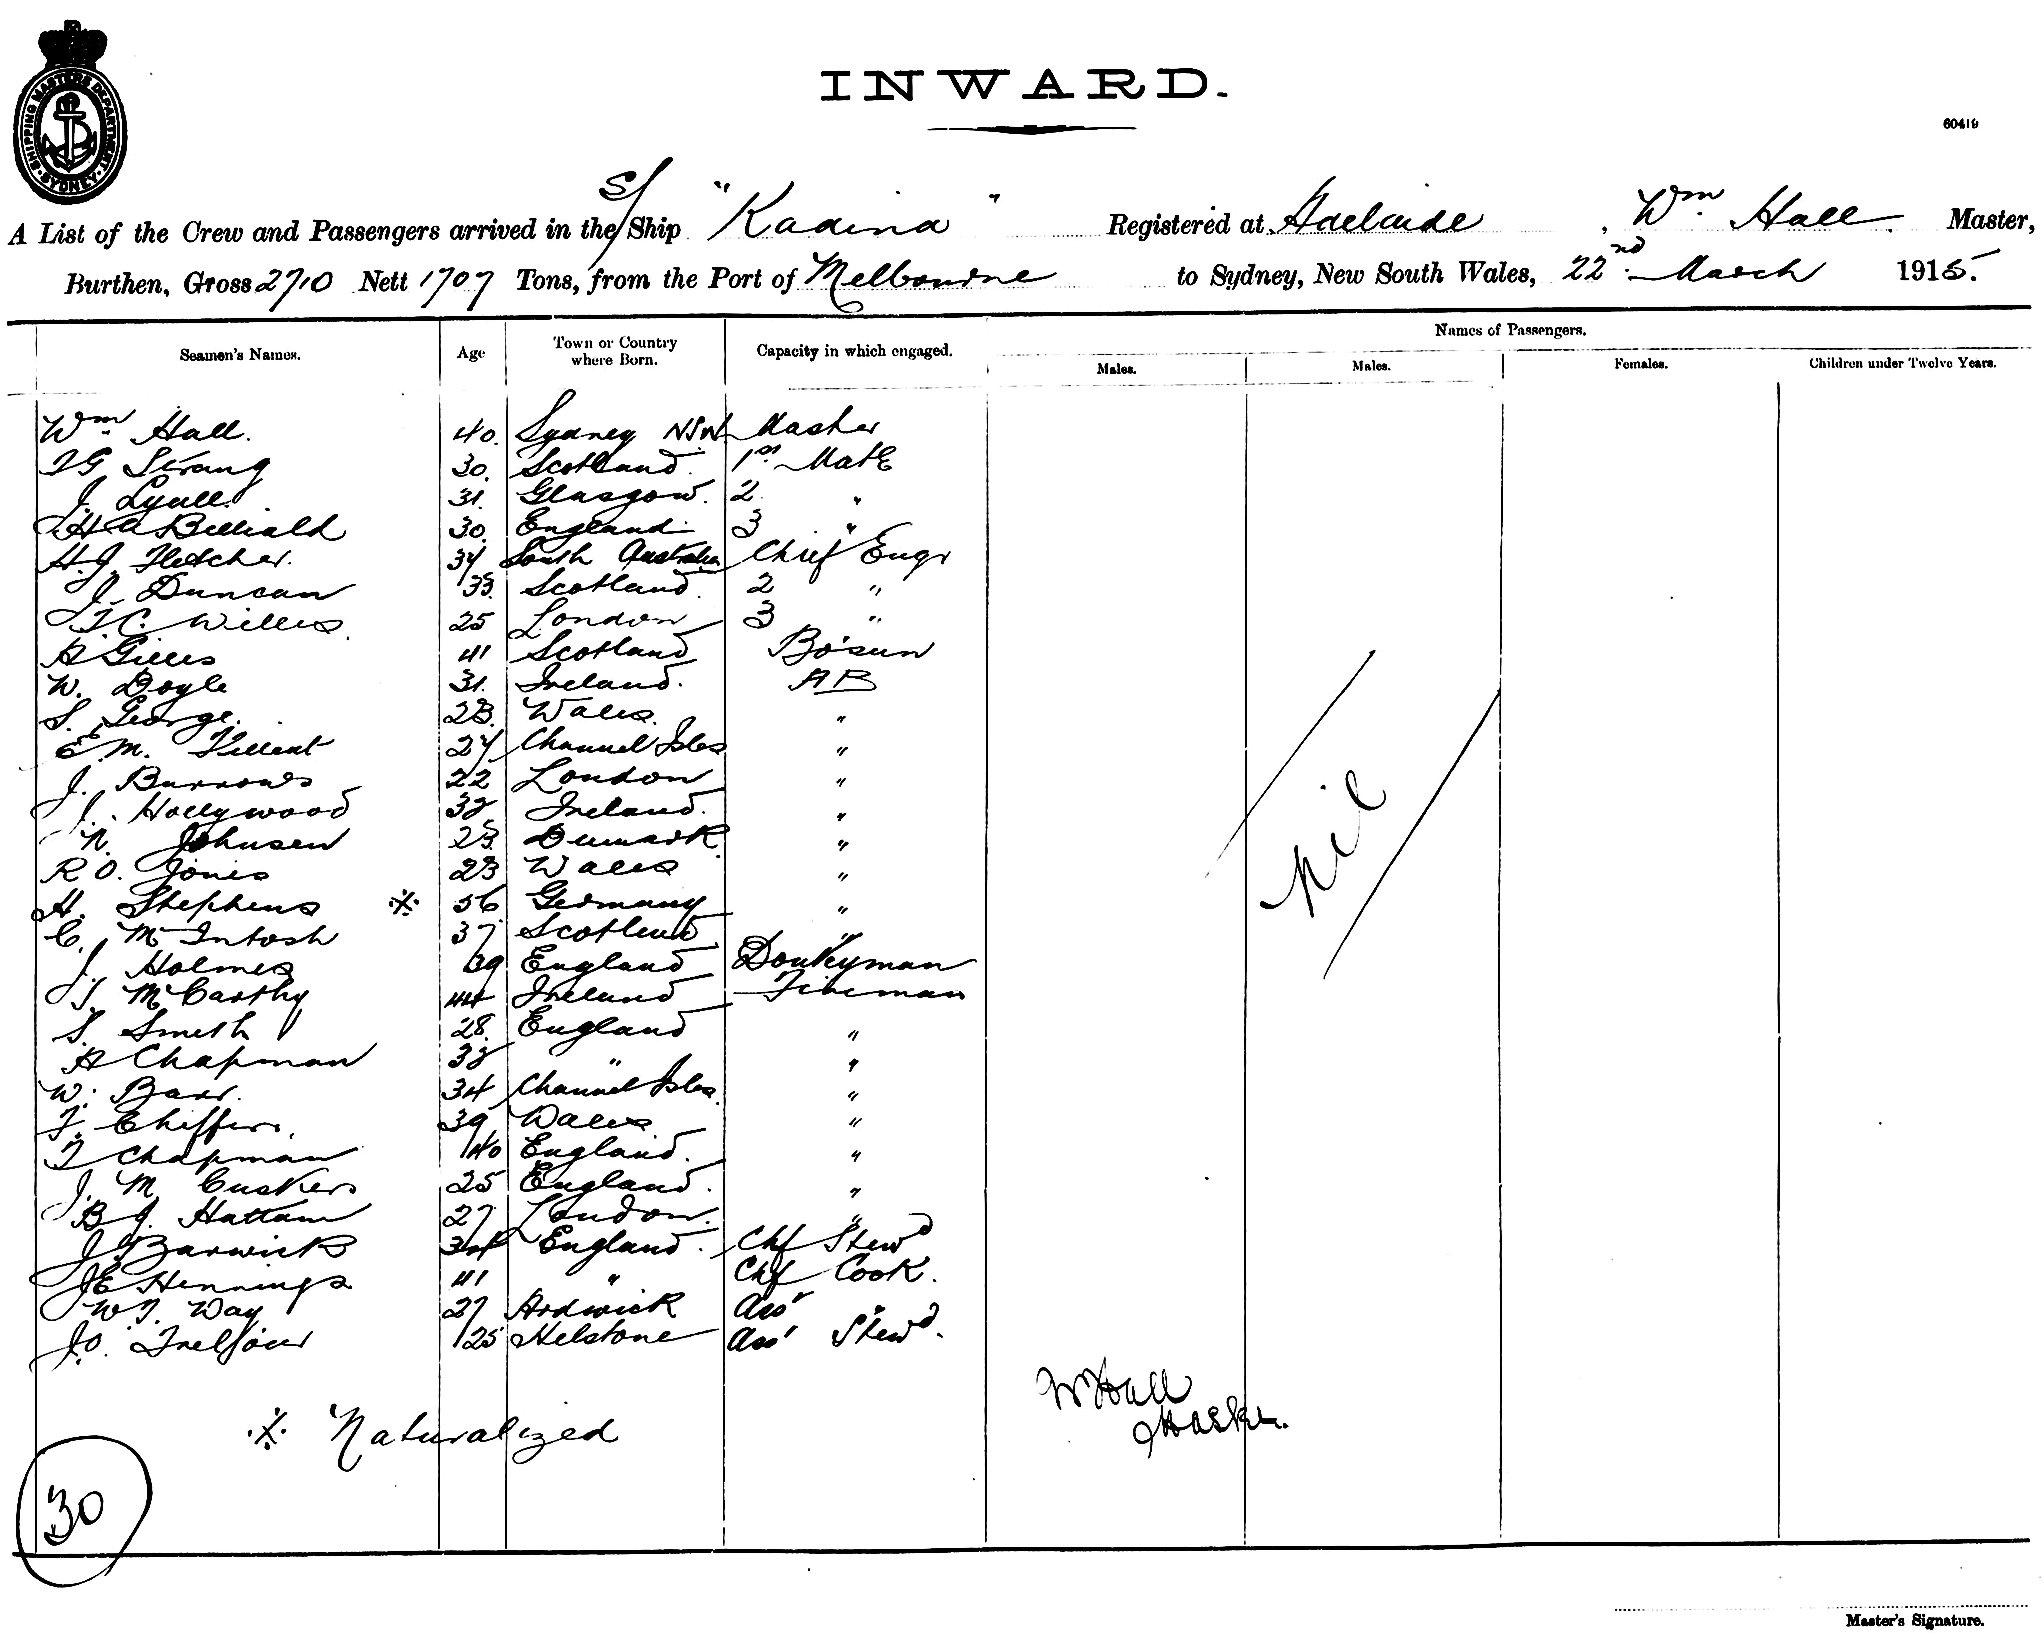 SHIPPING MASTERS DEPARTMENT SYDNEY
INWARD.
60419
A List of the Crew and Passengers arrived in the S/ Ship "Kadina" Registered at Adelaide, Wm Hall. Master,
Burthen, Gross 2710 Nett 1707 Tons, from the Port of Melbourne to Sydney, New South Wales, 22nd March 1915.
Names of Passengers.
Seamen's Names. Age Town or Country where Born. Capacity in which engaged. Males. Males. Females. Children under Twelve Years.
Wm Hall. 40. Sydney NSW Master
Strang 30. Scotland. 1st Mate
J. Lyall. 31. Glasgow. 2 "
30. England 3 "
H.J. Fletcher. 34 South Australia Chief Engr
J. Duncan 33. Scotland. 2 "
T.C. Willis. 25 London 3 "
A Gillis 41 Scotland Bo'sun
W. Doyle 31. Ireland. AB
S. George. 23. Wales. "
E.M. 27 Channel Isles "
J. Burrows 22 London "
J. Hollywood 38 Ireland. "
N. Johnsen 25 Denmark "
R O. Jones 23 Wales "
H. Stephens ※ 56 Germany "
C. Mc Intosh 37 Scotland "
J. Holmes 39 England Donkeyman
J. McCarthy 44 Ireland Fireman
S. Smith 28. England "
A Chapman 38 " "
W. Barr. 34 Channel Isles. "
T. 39 Wales "
T Chapman 40 England. "
J. Mc Cusker 25 England. "
B J. Hattam 27 London. "
J. Barwick 34 England. Chf Stewd
J E Hennings 41 " Chf Cook.
W.J. Way 27 Ardwick Ass "
J.O. 25 Helstone Ass Stewd.
nil
W Hall
Master.
※ Naturalized
30
Master's Signature.